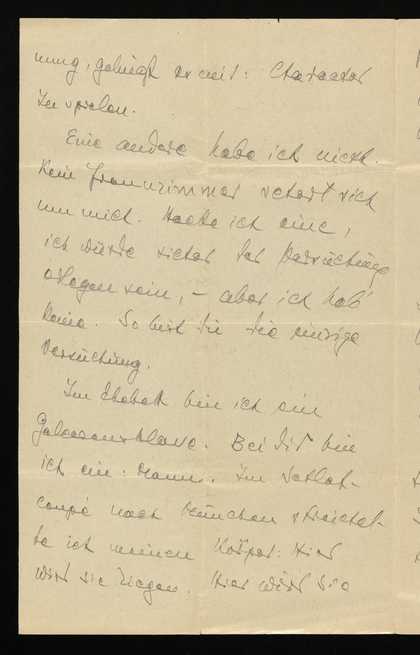 nung, gelingt es mir: Character
zu spielen.
Eine andere habe ich nicht.
Kein Frauenzimmer schert sich
um mich. Hätte ich eine,
ich würde sicher der Versuchung
erlegen sein, – aber ich hab'
keine. So bist Du die einzige
Versuchung.
Im Ehebett bin ich ein
Galeerensklave. Bei Dir bin
ich ein: Mann. Im Schlaf-
coupé nach München streichel-
te ich meinen Körper: Hier
wird sie liegen. Hier wird sie